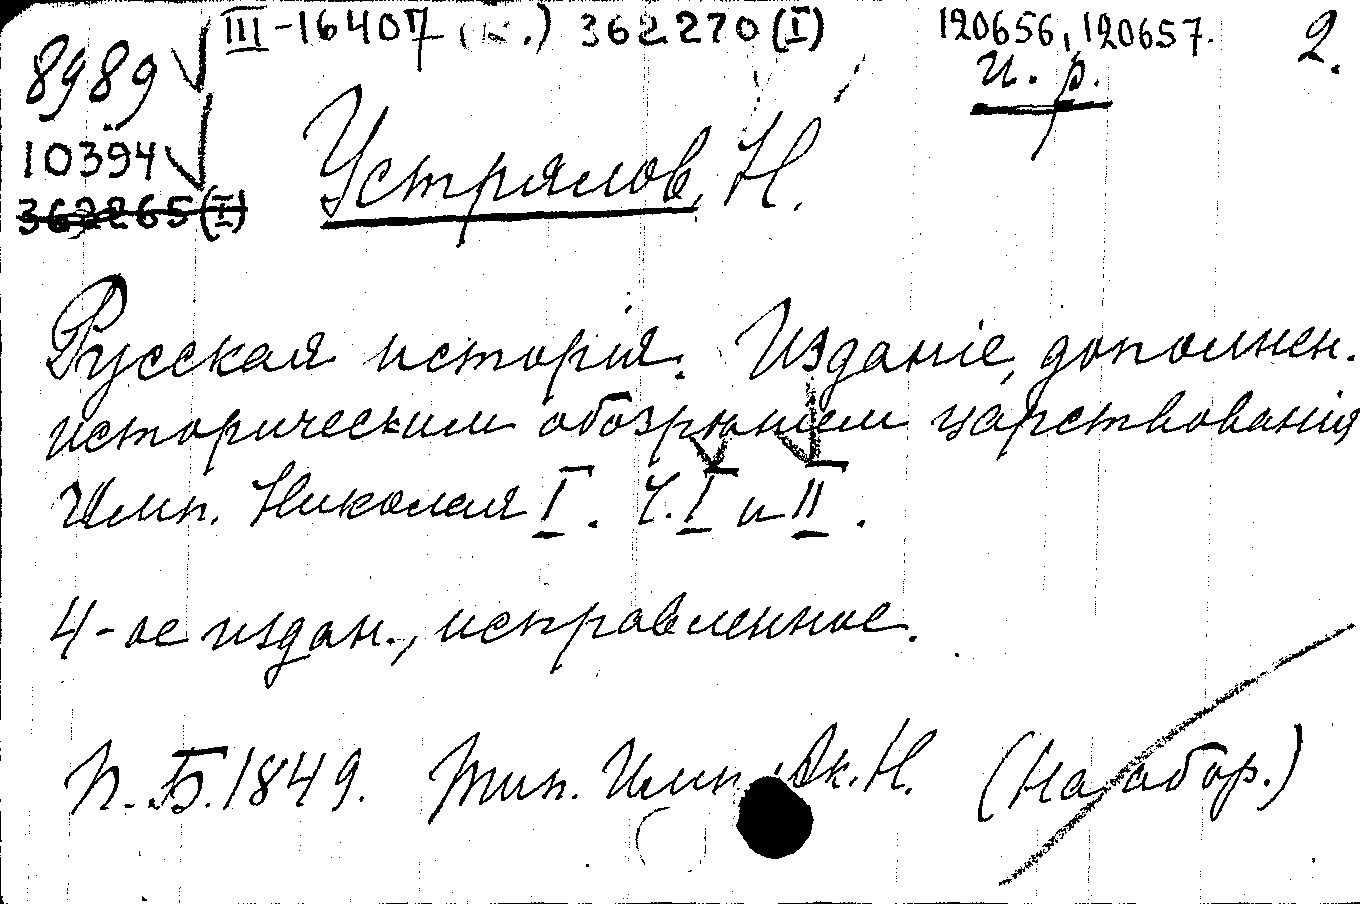 III-16407 (к.) 362270(I) 120656, 120657. 2.
8989 и. р.
10394
362265(I)
Устрялов, Н.
Русская исторія. Изданіе, дополнен.
историческим обозрѣнiем царствованія
Имп. Николая I. Ч. I и II.
4-ое издан., исправленное.
П.Б. 1849. Тип. Имп. Ак. Н. (На обор.)